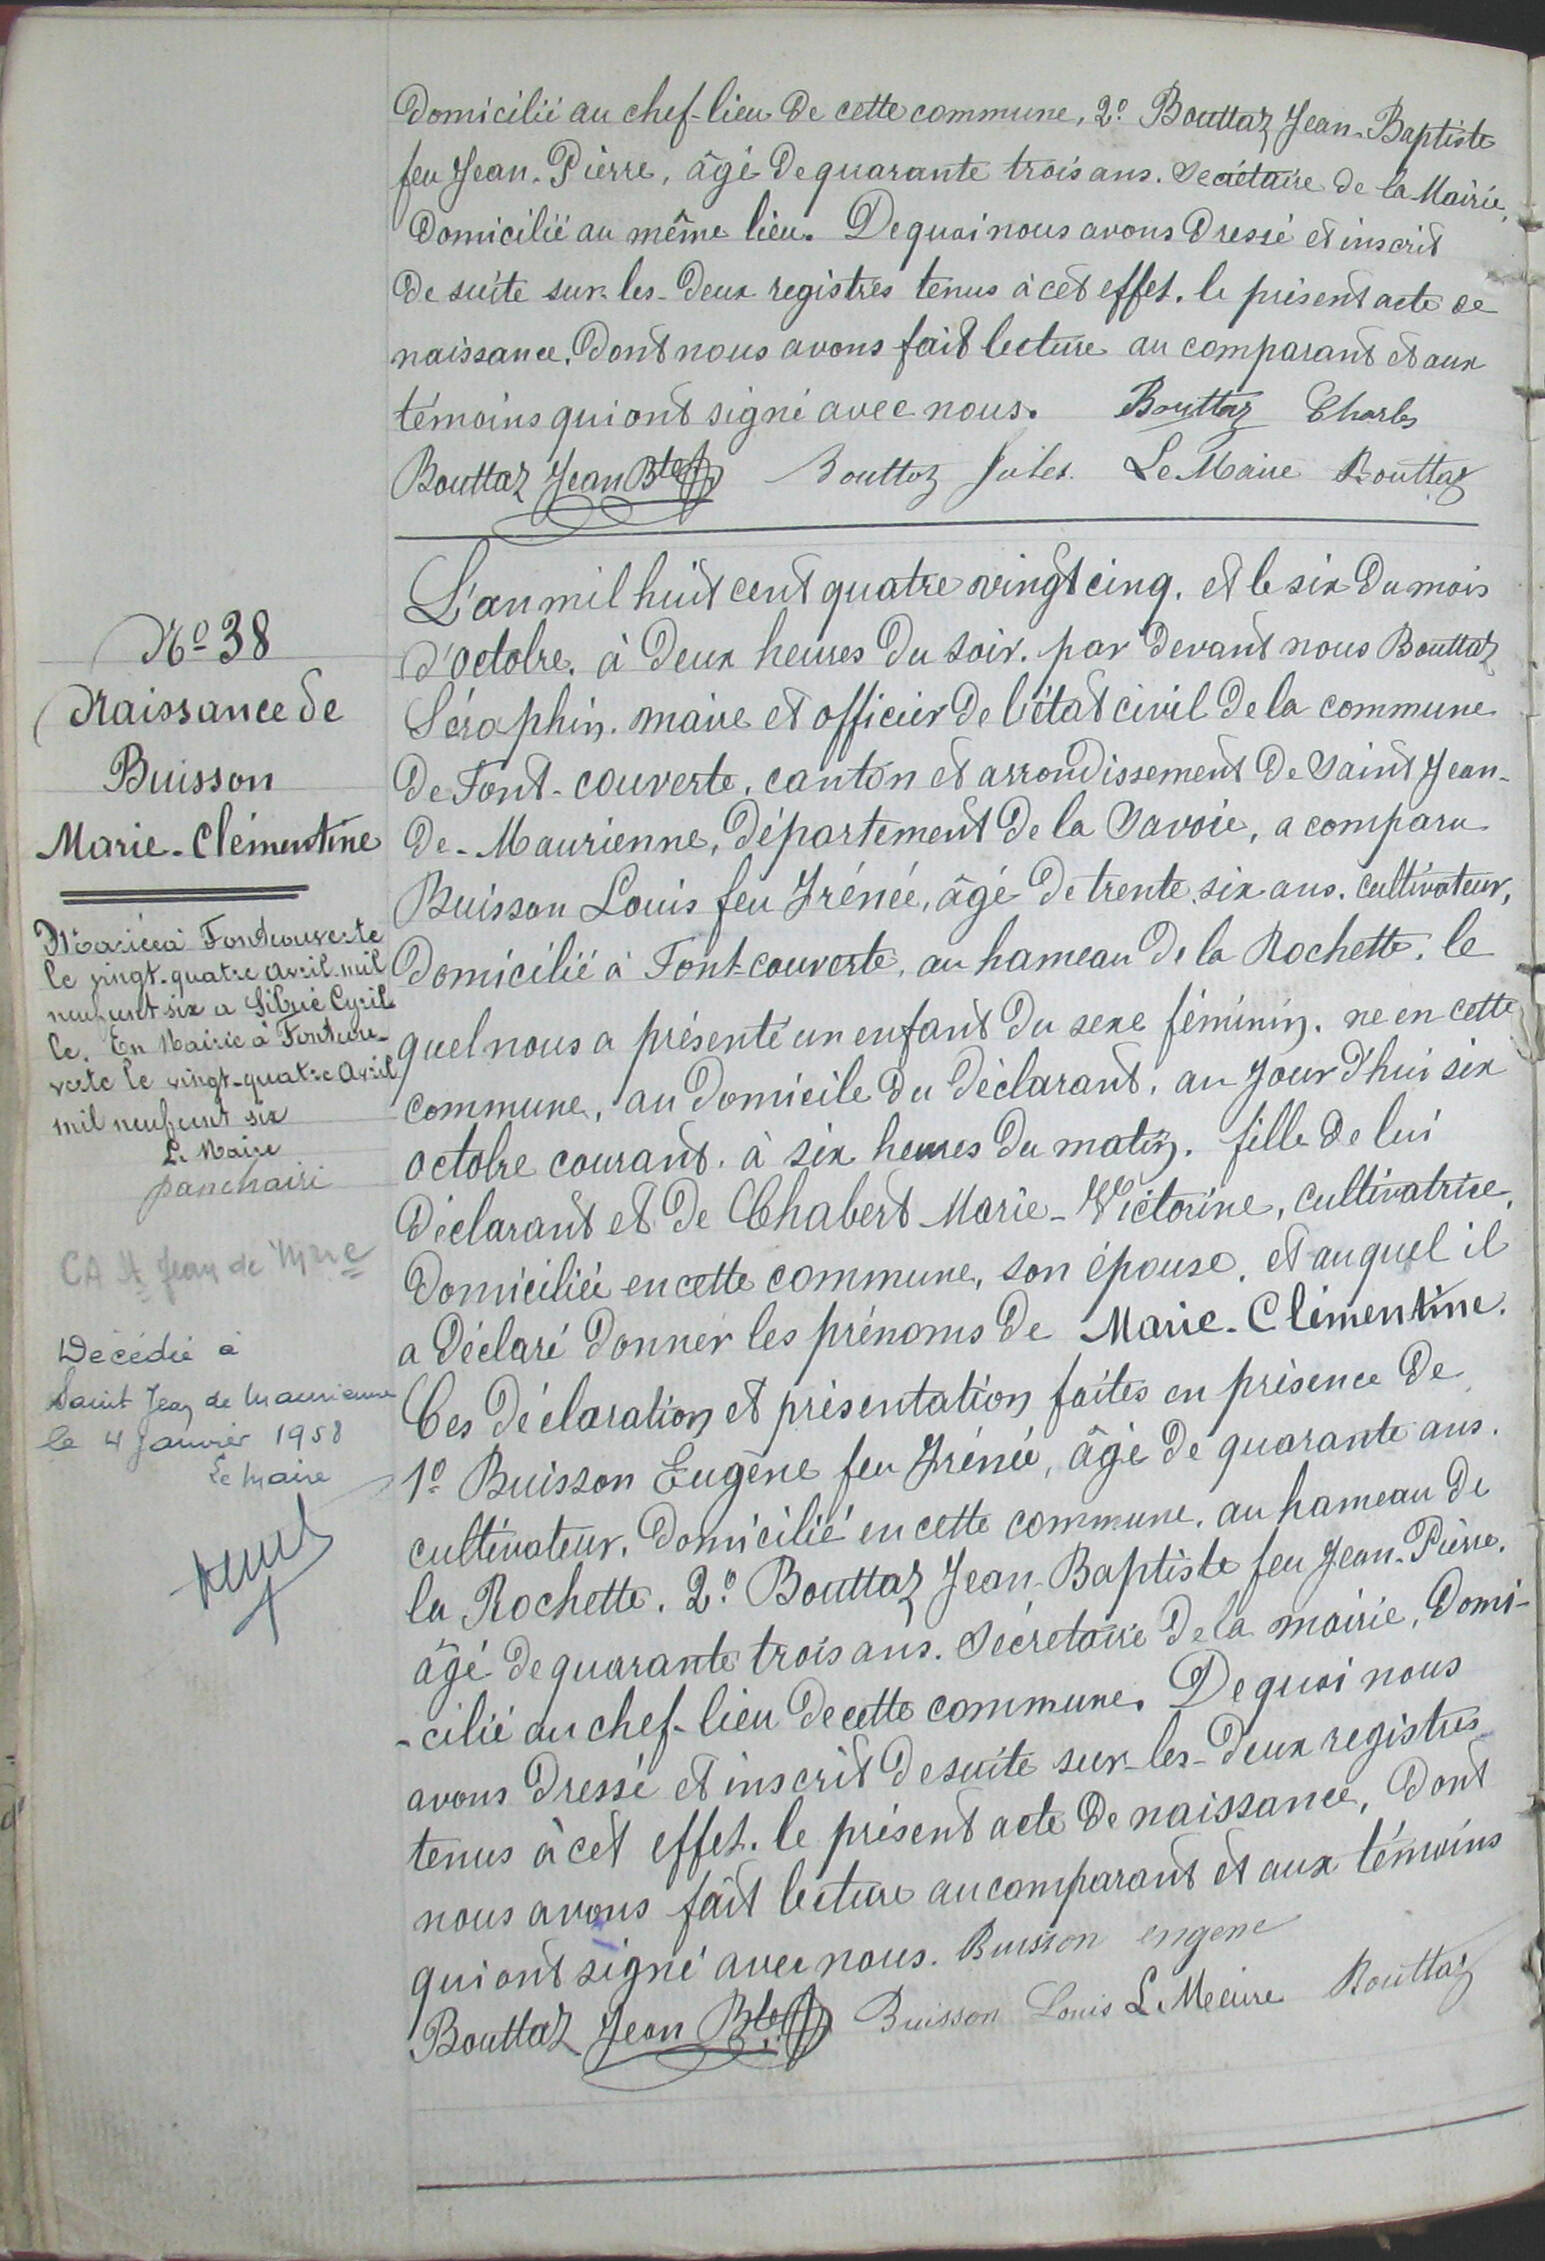 Domicilié au chef-lieu de cette commune, 2º Bouttaz Jean-Baptiste
feu Jean-Pierre, âgé de quarante trois ans. Secrétaire de la Mairie,
Domicilié au même lieu. De quoi nous avons Dressé et inscrit
de suite sur-les-deux registres tenus à cet effet. le présent acte de
naissance, Dont nous avons fait lecture au comparant et aux
témoins qui ont signé avec nous. Bouttaz Charles
Bouttaz Jean Bte Bouttaz Jules. Le Maire Bouttaz
Nº 38
Naissance de
Buisson
Marie-Clémentine
Mariée à Fontcouverte
le vingt-quatre avril mil
neuf cent six a Sibué Cyril
le. En Mairie à Fontcou-
verte le vingt-quatre Avril
mil neuf cent six
Le Maire
CA St Jean de Mne
Décédée à
Saint Jean de Maurienne
le 4 Janvier 1958
Le Maire
L'an mil huit cent quatre vingt cinq. et le six du mois
d'Octobre. à deux heures du soir. par devant nous Bouttaz
Séraphin. maire et officier de l'état civil de la commune
de Font-couverte, canton et arrondissement de Saint Jean-
de-Maurienne, Département de la Savoie, a comparu
Buisson Louis feu Irénée, âgé de trente six ans. cultivateur,
Domicilié à Font-couverte, au hameau de la Rochette. le
quel nous a présenté un enfant du sexe féminin. ne en cette
commune, au domicile du déclarant, au jour d'hui six
octobre courant. à six heures du matin. fille de lui
Déclarant et de Chabert Marie-Victorine, cultivatrice,
Domiciliée en cette commune, son épouse, et auquel il
a Déclaré donner les prénoms de Marie-Clémentine.
Ces déclaration et présentation faites en présence de
1º Buisson Eugène feu Irénée, âgé de quarante ans.
cultivateur, Domicilié en cette commune. au hameau de
la Rochette. 2º Bouttaz Jean-Baptiste feu Jean-Pierre.
âgé de quarante trois ans. Secrétaire de la mairie, Domi-
-cilié au chef-lieu de cette commune. De quoi nous
avons Dressé et inscrit de suite sur-les-deux registres
tenus à cet effet. le présent acte de naissance, Dont
nous avons fait lecture au comparant et aux témoins
qui ont signé avec nous. Buisson eugene
Bouttaz Jean Bte Buisson Louis Le Maire Bouttaz